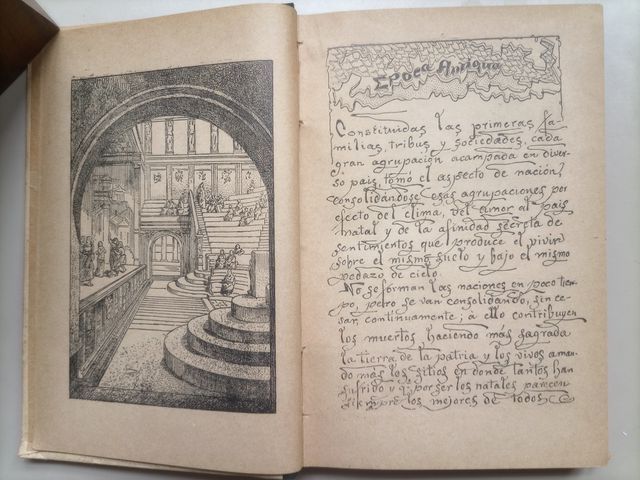 Epoca Antigua
Constituidas las primeras fa-
milias, tribus y sociedades, cada
gran agrupación acampada en diver-
so pais, tomó el aspecto de nación,
consolidándose esas agrupaciones por
efecto del clima, del amor al pais
natal y de la afinidad secreta de
sentimientos que produce el vivir
sobre el mismo suelo y bajo el mismo
pedazo de cielo.
No se forman las naciones en poco tiem-
po, pero se van consolidando, sin ce-
sar, continuamente; á ello contribuyen
los muertos haciendo más sagrada
la tierra de la patria y los vivos aman-
do más los sitios en donde tantos han
sufrido y q. por ser los natales parecen
siempre los mejores de todos